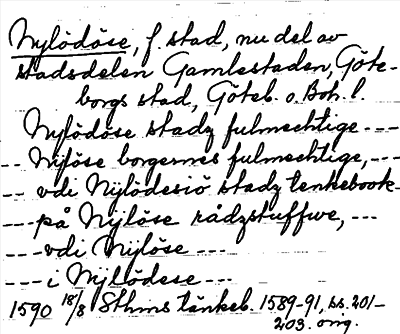 Nylödöse, f. stad, nu del av
stadsdelen Gamlestaden, Göte-
borgs stad, Göteb. o. Boh. l.
Nylödöse stadz fulmechtige ---
-- Nylöse borgernes fulmechtige, ---
-- vdi Nylödesiö stadz tenkebook-
--- på Nylöse rådzstuffwe, ---
--- vdi Nylöse ---
--- i Nylödese ---
1590 18/8 Sthms tänkeb. 1589-91, ss. 201-
203. orig.